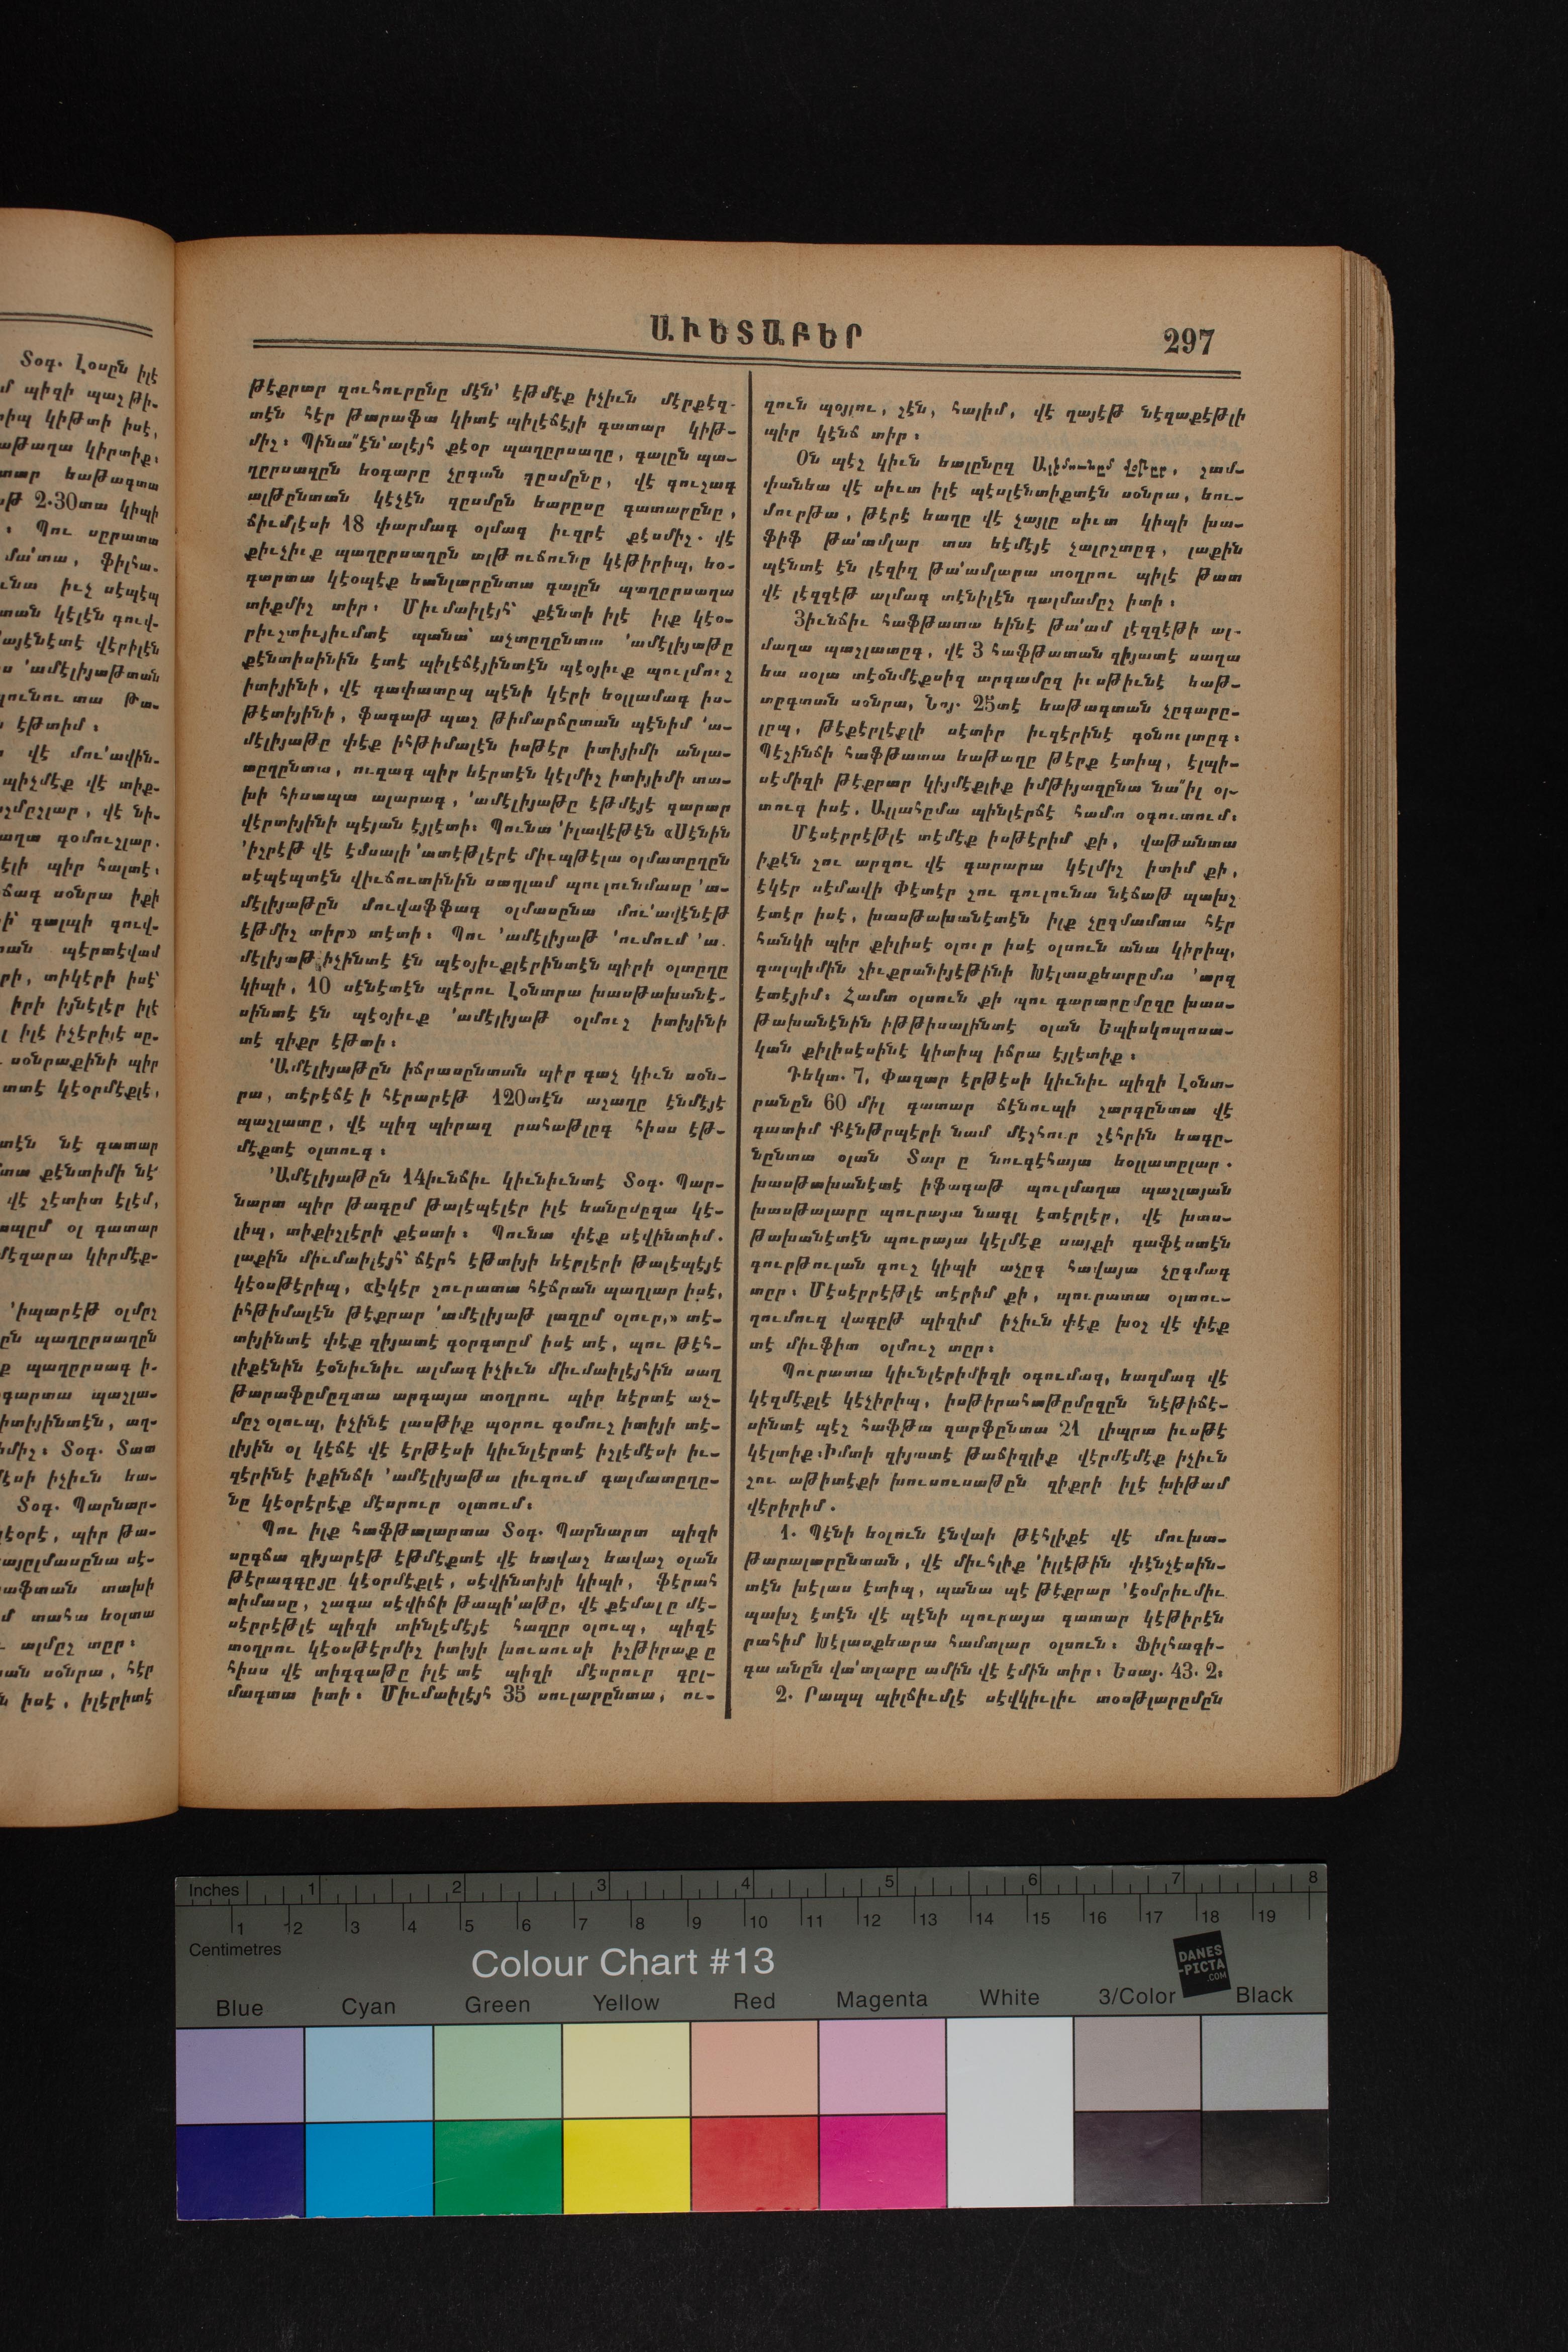 ԱՒԵՏԱԲԵՐ
297
թէքրար զուհուրընը մէն՝ էթմէք իչիւն մէրքէզ-
տէն հէր թարաֆա կիտէ պիլէճէյի գատար կիթ-
միշ։ Պինա՞էն՝ալէյհ քէօր պաղըրսաղը, գալըն պա-
ղըրսազըն եօգարը չըգան գըսմընը, վէ գուշագ
ալթընտան կէչէն գըսմըն եարըսը գատարընը,
ճիւմլէսի 18 փարմագ օլմագ իւզրէ քէսմիշ. վէ
քիւչիւք պաղըրսաղըն ալթ ուճունը կէթիրիպ, եօ-
գարտա կէօպէք եանլարընտա գալըն պաղըրսաղա
տիքմիշ տիր։ Միւմաիլէյհ՝ քէնտի իլէ իլք կէօ-
րիւշտիւյիւմտէ պանա՝ աչտըղընտա ՚ամէլիյաթը
քէնտիսինին էտէ պիլէճէյինտէն պէօյիւք պուլմուշ
իտիյինի, վէ գափատըպ պէնի կէրի եօլլամագ իս-
թէտիյինի, ֆագաթ պաշ թիմարճըտան պէնիմ ՚ա-
մէլիյաթը փէք իհթիմալէն իսթէր իտիյիմի անլա-
տըղընտա, ուզագ պիր եէրտէն կէլմիշ իտիյիմի տա-
խի հիսապա ալարագ, ՚ամէլիյաթը էթմէյէ գարար
վէրտիյինի պէյան էյլէտի։ Պունա ՚իլավէթէն «Սէնին
՚իշրէթ վէ էմսալի ՚ատէթլէրէ միւպթէլա օլմատըղըն
սէպէպտէն վիւճուտինին սաղլամ պուլունմասը ՚ա-
մէլիյաթըն մուվաֆֆագ օլմասընա մու՚ավէնէթ
էթմիշ տիր» տէտի։ Պու ՚ամէլիյաթ ՚ումում ՚ա.
մէլիյաթ իչինտէ էն պէօյիւքլէրինտէն պիրի օլտըղը
կիպի, 10 սէնէտէն պէրու Լօնտրա խասթախանէ-
սինտէ էն պէօյիւք ՚ամէլիյաթ օլմուշ իտիյինի
տէ զիքր էթտի։
՚Ամէլիյաթըն իճրասընտան պիր գաչ կիւն սօն-
րա, տէրէճէ ի հէրարէթ 120տէն աշաղը էնմէյէ
պաշլատը, վէ պիզ պիրազ րահաթլըգ հիսս էթ-
մէքտէ օլտուգ։
՚Ամէլիյաթըն 14իւնճիւ կիւնիւնտէ Տօգ. Պար-
նարտ պիր թագըմ թալէպէլէր իլէ եանըմըզա կէ-
լիպ, տիքիշլէրի քէստի։ Պունա փէք սէվինտիմ.
լաքին միւմաիլէյհ՝ ճէրհ էթտիյի եէրլէրի թալէպէյէ
կէօսթէրիպ, «Էկէր շուրատա հէճրան պաղլար իսէ,
իհթիմալէն թէքրար ՚ամէլիյաթ լազըմ օլուր,» տէ-
տիյինտէ փէք զիյատէ գօրգտըմ իսէ տէ, պու թէհ-
լիքէնին էօնիւնիւ ալմագ իչիւն միւմաիլէյհին սաղ
թարաֆըմըզտա արգայա տօղրու պիր եէրտէ աչ-
մըշ օլուպ, իչինէ լասթիք պօրու գօմուշ իտիյի տէ-
լիյին օլ կէճէ վէ էրթէսի կիւնլէրտէ իշլէմէսի իւ-
զէրինէ իքինճի ՚ամէլիյաթա լիւզում գալմատըղը-
նը կէօրէրէք մէսրուր օլտում։
Պու իլք հաֆթալարտա Տօգ. Պարնարտ պիզի
սըգճա զիյարէթ էթմէքտէ վէ եավաշ եավաշ օլան
թէրագգըյը կէօրմէքլէ, սէվինտիյի կիպի, ֆէրահ
սիմասը, շագա սէվիճի թապի՚աթը, վէ քէմալը մէ-
սէրրէթլէ պիզի տինլէմէյէ հազըր օլուպ, պիզէ
տօղրու կէօսթէրմիշ իտիյի խուսուսի իշթիրաք ը
հիսս վէ տիգգաթը իլէ տէ պիզի մէսրուր գըլ-
մագտա իտի։ Միւմաիլէյհ 35 սուլարընտա, ու-
զուն պօյլու, շէն, հալիմ, վէ ղայէթ նէզաքէթլի
պիր կէնճ տիր։
Օն պէշ կիւն եալընըզ Ալչմունըմ վօթըր, շամ-
փանեա վէ սիւտ իլէ պէսլէնտիքտէն սօնրա, եու-
մուրթա, թէրէ եաղը վէ չայլը սիւտ կիպի խա-
ֆիֆ թա՚ամլար տա եէմէյէ չալըշտըգ, լաքին
պէնտէ էն լէզիզ թա՚ամլարա տօղրու պիլէ թատ
վէ լէզզէթ ալմագ տէնիլէն գալմամըշ իտի։
3իւնճիւ հաֆթատա եինէ թա՚ամ լէզզէթի ալ-
մաղա պաշլատըգ, վէ 3 հաֆթատան զիյատէ սաղա
եա սօլա տէօնմէքսիզ արգամըզ իւսթիւնէ եաթ-
տըգտան սօնրա, Նոյ. 25տէ եաթագտան չըգարը-
լըպ, թէքէրլէքլի սէտիր իւզէրինէ գօնուլտըգ։
Պէշինճի հաֆթատա եաթաղը թէրք էտիպ, էլպի-
սէմիզի թէքրար կիյմէքլիք իմթիյազընա նա՞իլ օլ-
տուգ իսէ, Ալլահըմա պինլէրճէ համտ օգուտում։
Մէսէրրէթլէ տէմէք իսթէրիմ քի, վաթանտա
իքէն շու արզու վէ գարարա կէլմիշ իտիմ քի,
էկէր սէմավի Փէտէր շու գուլունա նէճաթ պախշ
էտէր իսէ, խասթախանէտէն իլք չըգմամտա հէր
հանկի պիր քիլիսէ օլուր իսէ օլսուն անա կիրիպ,
գալպիմին շիւքրանիյէթինի Խէլասքեարըմա ՚արզ
էտէյիմ։ Համտ օլսուն քի պու գարարըմըզը խաս-
թախանէնին իթթիսալինտէ օլան Եպիսկոպոսա-
կան քիլիսէսինէ կիտիպ իճրա էյլէտիք։
Դեկտ. 7, Փազար էրթէսի կիւնիւ պիզի Լօնտ-
րանըն 60 միլ գատար ճէնուպի շարգընտա վէ
գատիմ Քէնթրպէրի նամ մէշհուր շէհրին եագը-
նընտա օլան Տար ը նուգէհայա եօլլատըլար.
խասթախանէտէ իֆագաթ պուլմաղա պաշլայան
խասթալարը պուրայա նագլ էտէրլէր, վէ խաս-
թախանէտէն պուրայա կէլմէք սայքի գաֆէստէն
գուրթուլան գուշ կիպի աչըգ հավայա չըգմագ
տըր։ Մէսէրրէթլէ տէրիմ քի, պուրատա օլտու-
ղումուզ վագըթ պիզիմ իչիւն փէք խօշ վէ փէք
տէ միւֆիտ օլմուշ տըր։
Պուրատա կիւնլէրիմիզի օգումագ, եազմագ վէ
կէզմէքլէ կէչիրիպ, իսթիրահաթըմըզըն նէթիճէ-
սինտէ պէշ հաֆթա զարֆընտա 21 լիպրա իւսթէ
կէլտիք։ Իմտի զիյատէ թաճիզլիք վէրմէմէք իչիւն
շու աթիտէքի խուսուսաթըն զիքրի իլէ խիթամ
վէրիրիմ.
1. Պէնի եօլուն էնվաի թէհլիքէ վէ մուխա-
թարալարընտան, վէ միւհլիք ՚իլլէթին փէնչէսին-
տէն խէլաս էտիպ, պանա պէ թէքրար ՚էօմրիւմիւ
պախշ էտէն վէ պէնի պուրայա գատար կէթիրէն
րահիմ Խէլասքեարա համտլար օլսուն։ Ֆիլհագի-
գա անըն վա՚տլարը ամին վէ էմին տիր։ Եսայ. 43. 2։
2. Րապպ պիլճիւմլէ սէվկիւլիւ տօսթլարըմըն
Inches 1 2 3 4 5 6 7 8
1 2 3 4 5 6 7 8 9 10 11 12 13 14 15 16 17 18 19
Centimetres
Colour Chart #13
DANES
-PICTA
.COM
Blue Cyan Green Yellow Red Magenta White 3/Color Black